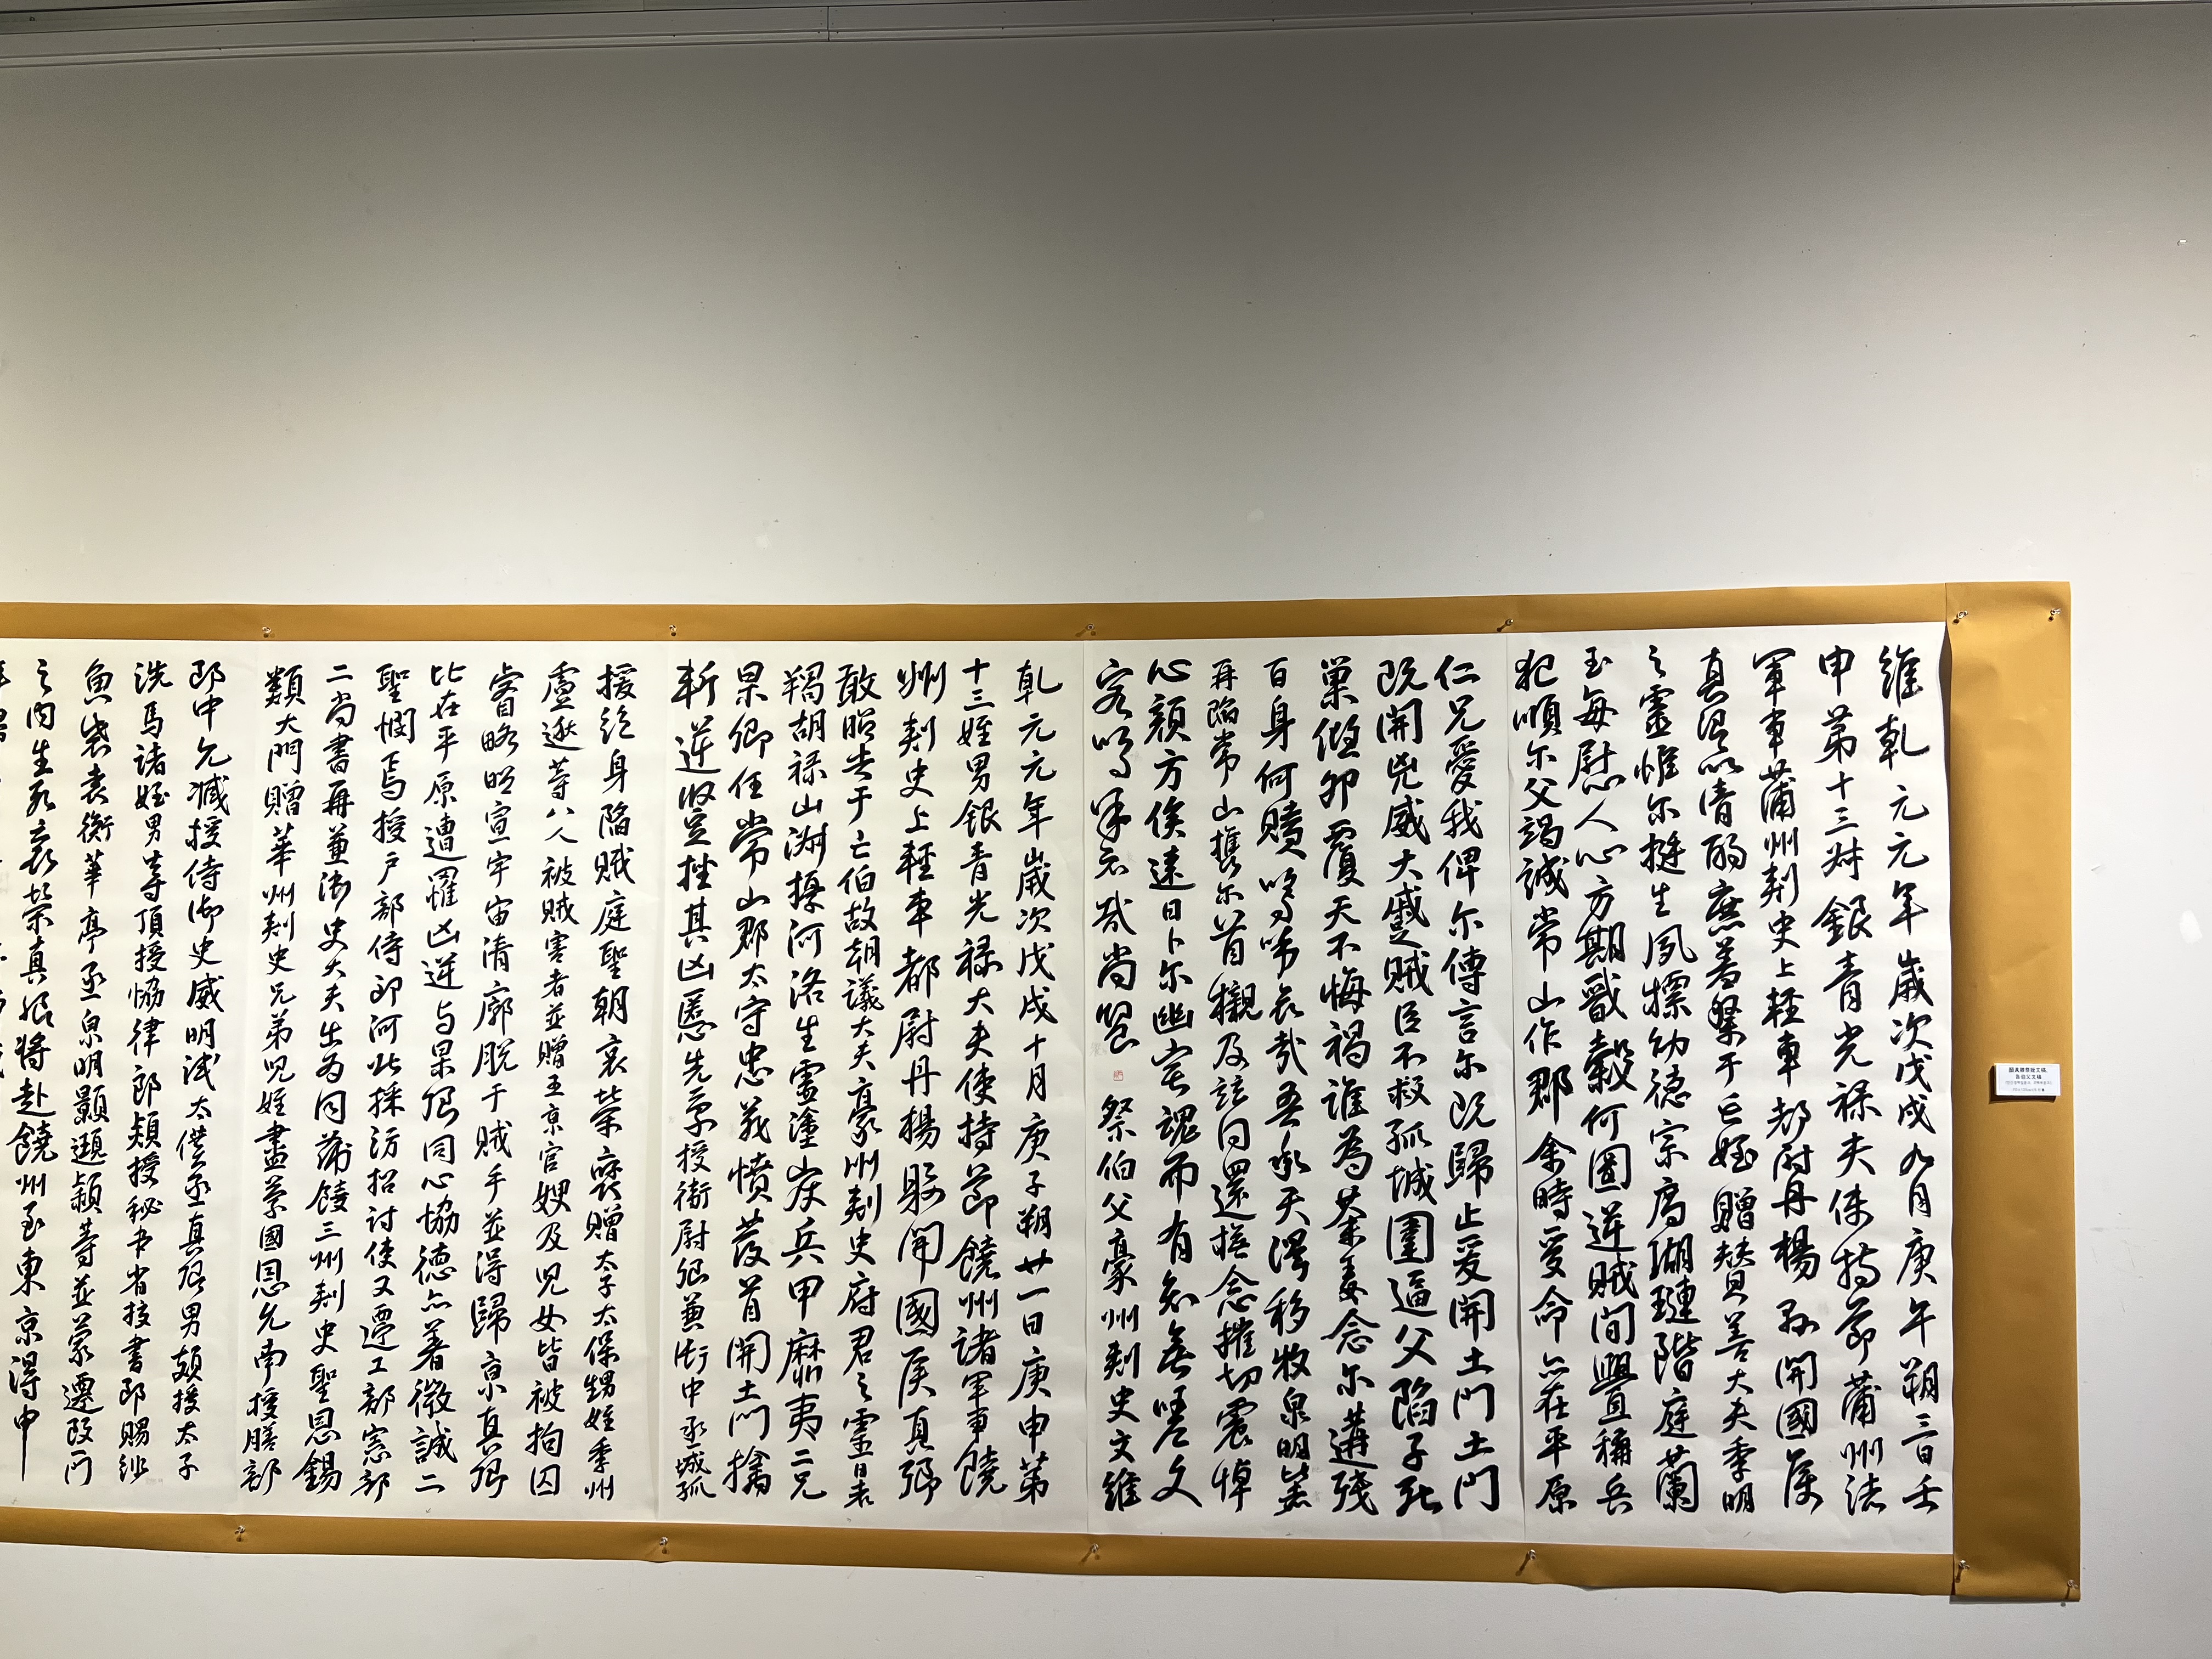 維乾元元年歲次戊戌九月庚午朔三日壬
申第十三叔銀青光祿夫使持節蒲州諸
軍事蒲州刺史上輕車都尉丹楊縣開國侯
真卿以清酌庶羞祭于亡姪贈贊善大夫季明
之靈惟尔挺生夙標幼德宗廟瑚璉階庭蘭
玉每慰人心方期戩穀何圖逆賊間釁稱兵
犯順尔父竭誠常山作郡余時受命亦在平原
仁兄愛我俾尔傳言尔既歸止爰開土門土門
既開兇威大蹙賊臣不救孤城圍逼父陷子死
巢傾卵覆天不悔禍誰為荼毒念尔遘殘
百身何贖嗚呼哀哉吾承天澤移牧泉明比者
再陷常山攜尔首櫬及茲同還撫念摧切震悼
心顏方俟遠日卜尔幽宅魂而有知無嗟久
客嗚呼哀哉尚饗 祭伯父豪州刺史文維
乾元元年歲次戊戌十月庚子朔廿一日庚申第
十三姪男銀青光祿大夫使持節饒州諸軍事饒
州刺史上輕車都尉丹楊縣開國侯真卿
敢昭告于亡伯故朝議大夫豪州刺史府君之靈日者
羯胡祿山俶擾河洛生靈塗炭兵甲靡夷二兄
杲卿任常山郡太守忠義憤發首開土門擒
斬逆豎挫其凶慝先帝授衛尉卿兼御中丞城孤
援絕身陷賊庭聖朝哀榮褒贈太子太保甥姪季州
盧逖等八人被賊害者並贈五京官嫂及兒女皆被拘囚
睿略昭宣宇宙清廓脫于賊手並得歸京真卿
比在平原遭罹凶逆与杲卿同心協德亦著微誠二
聖憫焉授戶部侍郎河北採訪招討使又遷工部憲部
二尚書再兼御史大夫出為同蒲饒三州刺史聖恩錫
類大門贈華州刺史兄弟兒姪盡蒙國恩允南授膳部
郎中允臧授侍御史威明試太僕丞真卿男頗授太子
洗馬諸姪男等頂授協律郎頍授秘书省校書郎賜緋
魚袋袁衡華亭丞泉明顯頲穎等並蒙遷改一門
之內生死哀榮真卿將赴饒州至東京得申
顏真卿祭姪文稿、
告伯父文稿